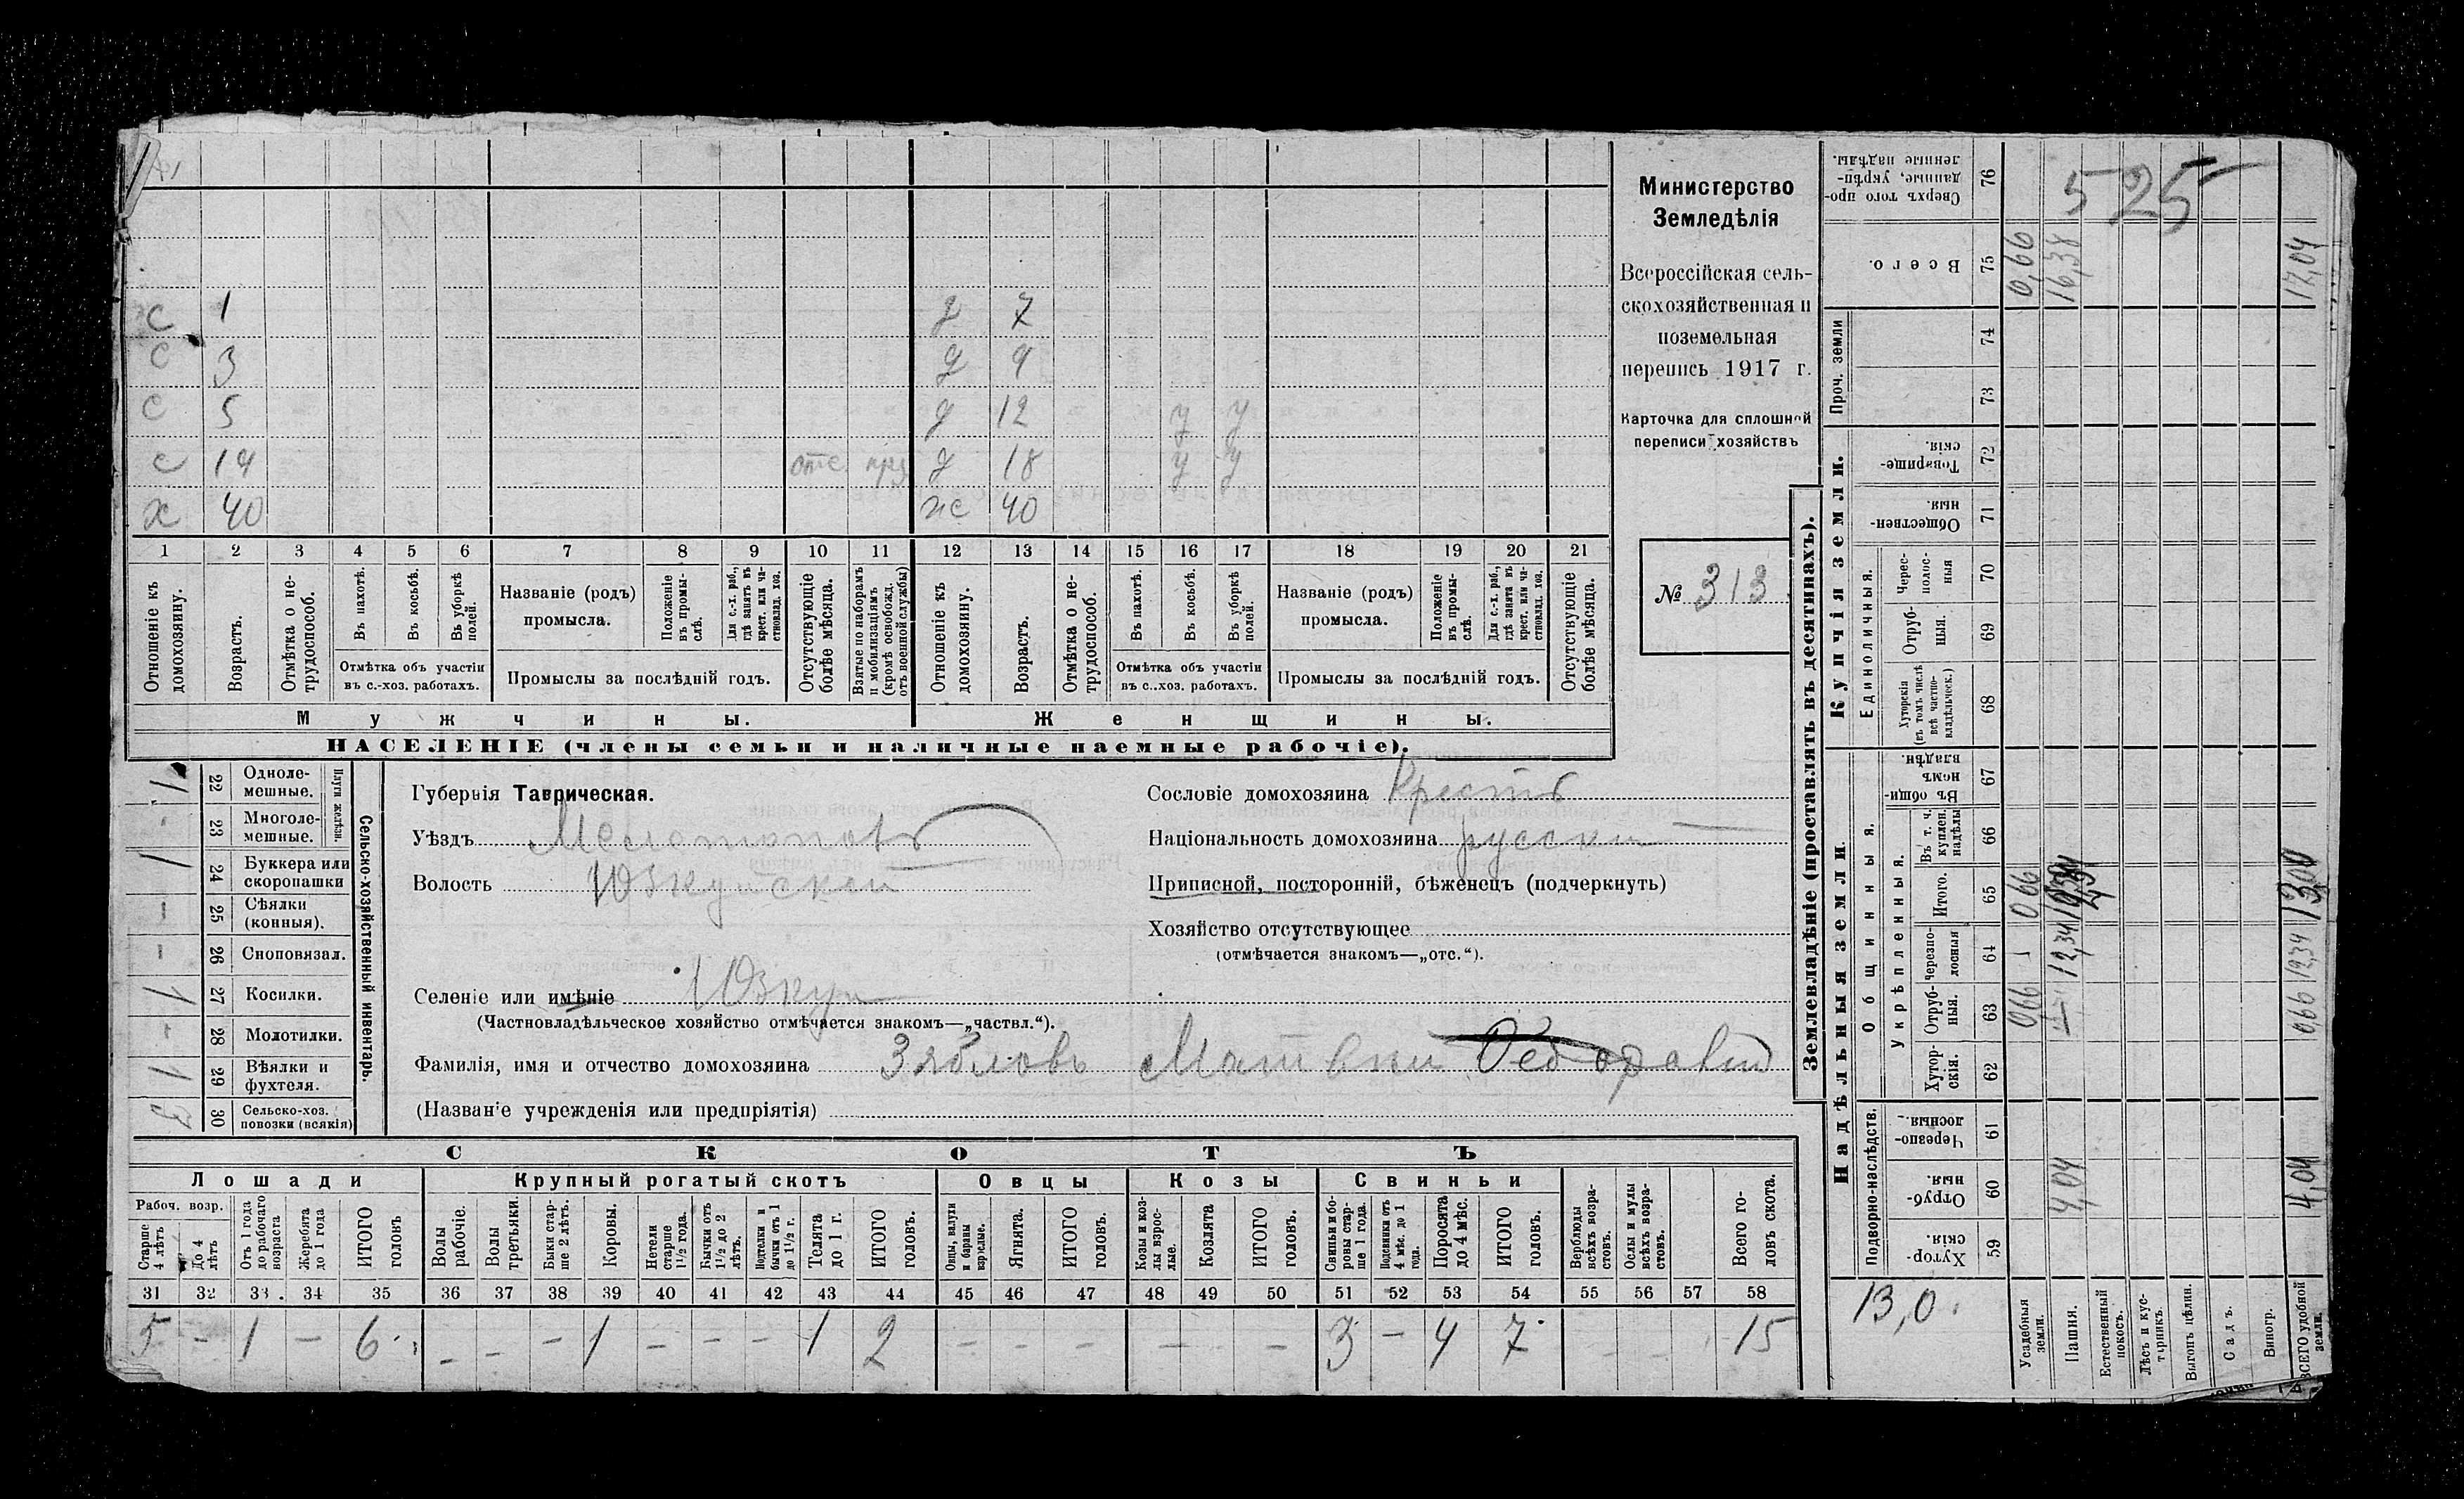 с 1 д 7
с 3 д 9
с 5 д 12 у у
с 19 отс. д 18 у у
х 40 ж 40
1 2 3 4 5 6 7 8 9 10 11 12 13 14 15 16 17 18 19 20 21
Отношеніе къ домохозяину.
Возрастъ.
Отмѣтка о нетрудоспособ.
Въ пахотѣ.
Въ косьбѣ.
Въ уборкѣ полей.
Отмѣтка объ участіи
въ с.-хоз. работахъ.
Названіе (родъ)
промысла.
Положеніе въ промыслѣ.
Для с.-х. раб., гдѣ занятъ въ крест. или частновлад. хоз.
Промыслы за послѣдній годъ.
Отсутствующіе болѣе мѣсяца.
Взятые по наборамъ и мобилизаціямъ (кромѣ освобожд. отъ военной службы)
Отношеніе къ домохозяину.
Возрастъ.
Отмѣтка о нетрудоспособ.
Въ пахотѣ.
Въ косьбѣ.
Въ уборкѣ полей.
Отмѣтка объ участіи
въ с..хоз. работахъ.
Названіе (родъ)
промысла.
Положеніе въ промыслѣ.
Для с.-х. раб., гдѣ занята въ крест. или частновлад. хоз.
Промыслы за послѣдній годъ.
Отсутствующіе болѣе мѣсяца.
Мужчины.
Женщины.
НАСЕЛЕНІЕ (члены семьи и наличные наемные рабочіе).
Министерство
Земледѣлія
Всероссійская сель-
скохозяйственная и
поземельная
перепись 1917 г.
Карточка для сплошной
переписи хозяйствъ
№ 313
Сельско-хозяйственный инвентарь.
Плуги желѣзн.
22 Одноле-
мешные. 1
23 Многоле-
мешные.
24 Буккера или
скоропашки 1
25 Сѣялки
(конныя). -
26 Сноповязал. -
27 Косилки. 1
28 Молотилки. -
29 Вѣялки и
фухтеля. 1
30 Сельско-хоз.
повозки (всякія)
Губернія Таврическая.
Уѣздъ
Волость
Селеніе или имѣніе Юзкуи
(Частновладѣльческое хозяйство отмѣчается знакомъ—„частвл.“).
Сословіе домохозяина Крестъ
Національность домохозяина русскій
Приписной, посторонній, бѣженецъ (подчеркнуть)
Хозяйство отсутствующее
(отмѣчается знакомъ—„отс.“).
Фамилія, имя и отчество домохозяина Зябловъ
(Названіе учрежденія или предпріятія)
СКОТЪ
Лошади
Рабоч. возр.
Старше 4 лѣтъ
До 4 лѣтъ
Отъ 1 года до рабочаго возраста
Жеребята до 1 года
ИТОГО головъ
Крупный рогатый скотъ
Волы рабочіе.
Волы третьяки.
Быки старше 2 лѣтъ.
Коровы.
Нетели старше 1½ года.
Бычки отъ 1½ до 2 лѣтъ.
Подтелки и бычки отъ 1 до 1½ г.
Телята до 1 г.
ИТОГО головъ.
Овцы
Овцы, валухи и бараны взрослые.
Ягнята.
ИТОГО головъ.
Козы
Козы и козлы взрослые.
Козлята
ИТОГО головъ.
Свиньи
Свиньи и боровы старше 1 года.
Подсвинки отъ 4 мѣс. до 1 года.
Поросята до 4 мѣс.
ИТОГО головъ.
Верблюды всѣхъ возрастовъ.
Ослы и мулы всѣхъ возрастовъ.
Всего головъ скота.
31 32 33 34 35 36 37 38 39 40 41 42 43 44 45 46 47 48 49 50 51 52 53 54 55 56 57 58
5 - 1 - 6 - - - 1 - - - 1 2 - - - - - 3 - 4 7 - - 15
Землевладѣніе (проставлять въ десятинахъ).
Купчія земли.
Надѣльныя земли.
Сверхъ того проданные, укрѣпленные надѣлы. 76
525
Всего. 75
0,66
16,38
17,04
Проч. земли
74
73
Товарищескія. 72
Общественныя. 71
Единоличныя.
Черезполосныя 70
Отрубныя. 69
Хуторскія (въ томъ числѣ всѣ частновладѣльческ.) 68
Общинныя.
Въ общинномъ владѣн. 67
Укрѣпленныя.
Въ т. ч. куплен. надѣлы 66
Итого. 65
066
13,00
Черезполосныя 64
12,34
12,34
Отрубныя. 63
066
0,66
Хуторскія. 62
Подворно-наслѣдств.
Черезполосныя. 61
Отрубныя. 60
4,04
4,04
Хуторскія. 59
13,0
Усадебныя земли.
Пашня.
Естественный покосъ.
Лѣсъ и кустарникъ.
Выгонъ цѣлин.
Садъ.
Виногр.
ВСЕГО удобной земли.